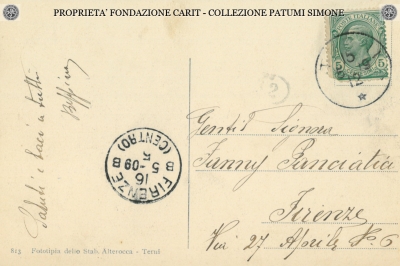 PROPRIETA' FONDAZIONE CARIT - COLLEZIONE PATUMI SIMONE
POSTE ITALIANE
5 5
Saluti e baci a tutti
Beppina
FIRENZE
(CENTRO)
16
5-09
8 8
Gentil Signora
Fanny Panciatia
Firenze
Via 27 Aprile No 6
813 Fototipia dello Stab. Alterocca - Terni